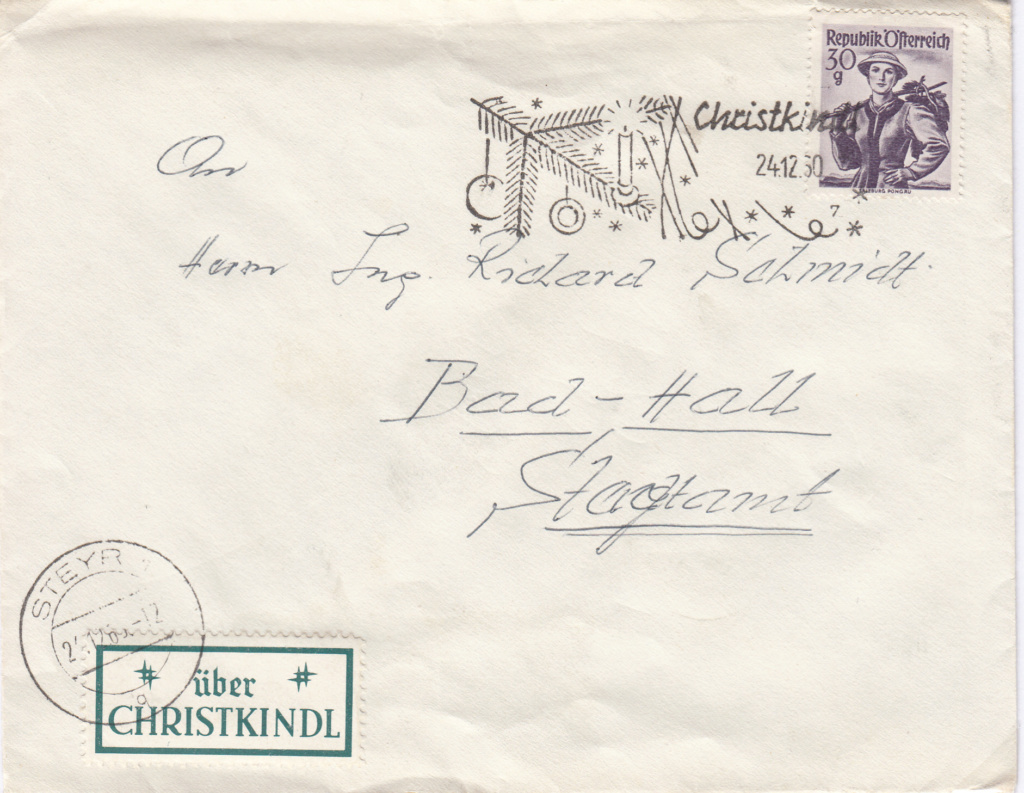 Republik Österreich
30
g
SALZBURG PONGAU
Christkindl
24.12.60
7
An
Herrn Ing. Richard Schmidt.
Bad-Hall
Stadtamt
STEYR 1
über
CHRISTKINDL